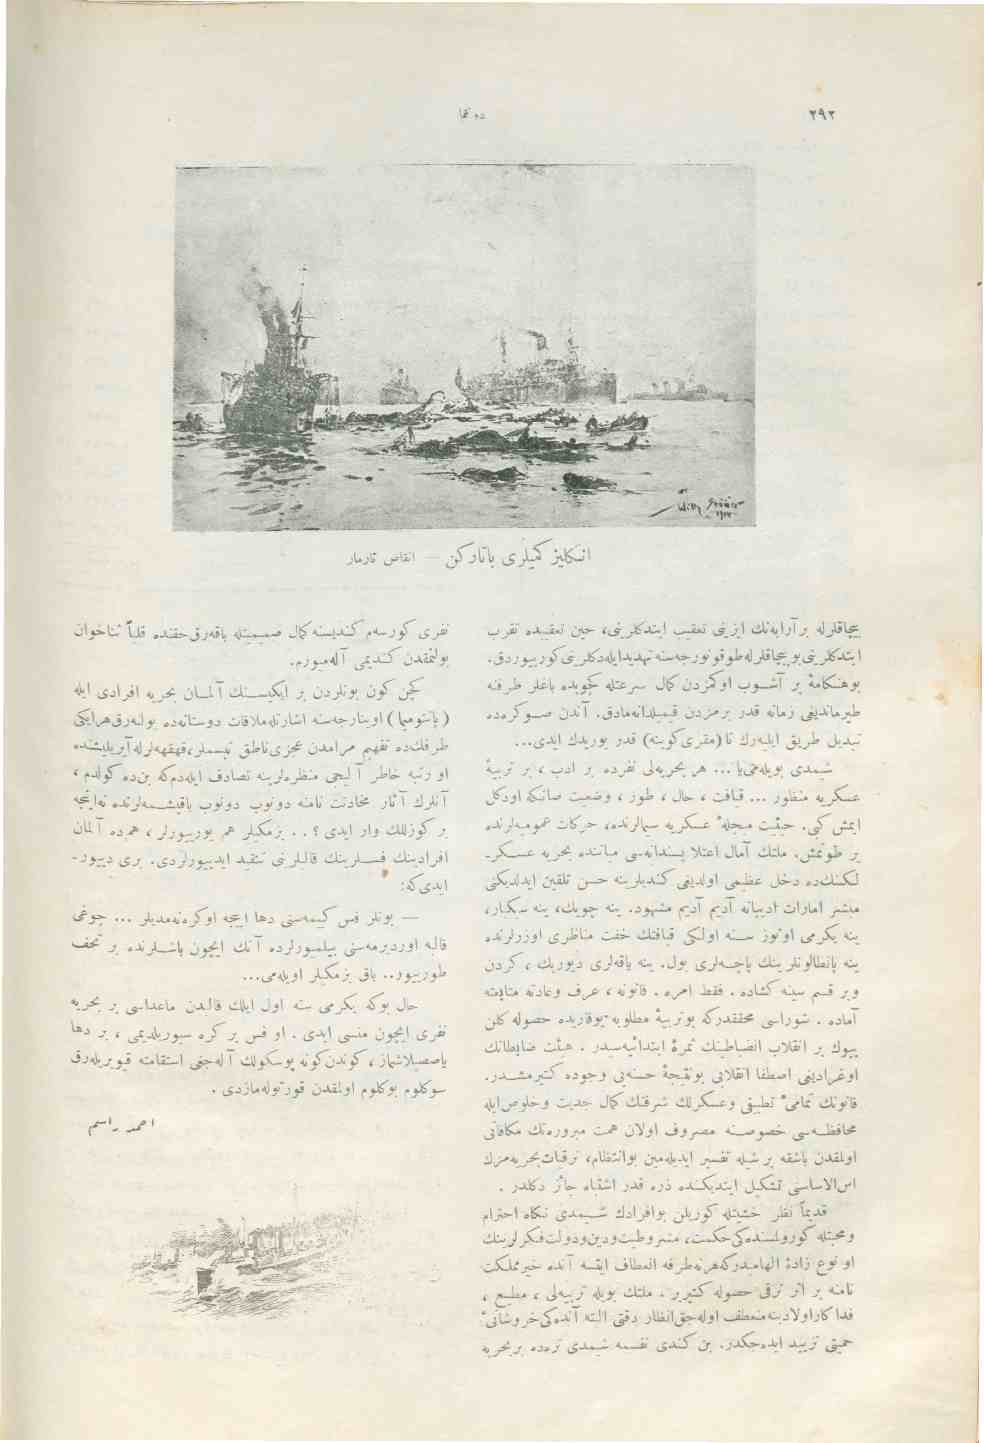 ٢٩٢
دونما
انكليز كميلرى باتاركن — انقاض تارمار
بيچاقلرله بر آرابه‌نك ايزينى تعقيب ايتدكلرينى، حين تعقيبده تقرب
ايتدكلرينى بو بيچاقلرله طوقونورجه‌سنه تهديد ايله‌دكلرينى كوربيوردق.
بوهنكامهٔ بر آشوب اوكمزدن كمال سرعتله كچوبده باغلر طرفنه
طيرماندیغی زمانه قدر برمزدن قيميلدانه‌مادق. آندن صوكره‌ده
تبديل طريق ايليه‌رك تا (مقرى كوينه) قدر يوريدك ايدى...
شيمدى بويله‌مى‌يا... هر بحريه‌لى نفرده بر ادب ، بر تربيهٔ
عسكريه منظور ... قيافت ، حال ، طور ، وضعيت صانكه اودكل
ايمش كبى. حيثيت مبجلهٔ عسكريه سيمالرنده، حركات عموميه‌لرنده
بر طوتمش. ملتك آمال اعتلا پسندانه‌سى مياننده بحريه عسكر-
لكنك‌ده دخل عظيمى اولديغى كنديلرينه حسن تلقين ايدلديكنى
مبشر امارات ادبيانه آديم آديم مشهود. ينه چويك، ينه سبكبار،
ينه يكرمى اوتوز سنه اولكى قيافتك خفت مناظرى اوزرلرنده
ينه پانطالونلرينك پاچه‌لرى بول. ينه ياقه‌لرى ديوريك ، كردن
وبر قسم سينه كشاده . فقط امره . قانونه ، عرف وعادته متابعته
آماده . شوراسى محققدركه بوتربيهٔ مطلوبه يوقاريده حصوله كلن
بيوك بر انقلاب انضباطينك ثمرهٔ ابتدائيه‌سيدر . هيئت ضابطانك
اوغراديغى اصطفا انقلابى بونتيجهٔ حسنه‌يى وجوده كتيرمشدر.
قانونك تمامئ تطبيقى وعسكرلك شرفنك كمال جديت وخلوص ايله
محافظه‌سى خصوصنه مصروف اولان همت مبروره‌نك مكافاتى
اولمقدن باشقه بر شيله تفسير ايديله‌مين بوانتظام، ترقيات بحريه‌مزك
اس‌الاساسى تشكيل ايتديكنده ذره قدر اشتباه جائز دكلدر .
قديماً نظر خشيتله كوريلن بوافرادك شيمدى نكاه احترام
ومحبتله كورولمسنده‌كى حكمت، مشروطيت ودين ودولت فكرلرينك
او نوع زادهٔ الهاميدركه هرنه‌طرفه انعطاف ايتسه آنده خيرمملكت
نامنه بر اثر ترقى حصوله كتيرير . ملتك بويله تربيه‌لى ، مطيع ،
فداكار اولادينه منعطف اوله‌جق انظار دقتى البته آنده‌كى خروشانئ
حميتى تزييد ايده‌جكدر. بن كندى نفسمه شيمدى نره‌ده بر بحريه
نفرى كورسه‌م كنديسنه كمال صميميتله باقه‌رق حقنده قلباً ثناخوان
بولنمقدن كنديمى آله‌ميورم.
كچن كون بونلردن بر ايكيسنك آلمان بحريه افرادى ايله
(پانتوميما) اوينارجه‌سنه اشارتله ملاقات دوستانه‌ده بوله‌رق هرايكى
طرفك‌ده تفهيم مرامدن عجزى ناطق تبسملر، قهقهه‌لرله آيريليشنده
او رتبه خاطر آليجى منظره‌لرينه تصادف ايله‌دم‌كه بن‌ده كولدم ،
آنلرك آثار مخادنت نامنه دونوب دونوب باقيشمه‌لرنده نه‌اينجه
بر كوزللك وار ايدى ؟ . . بزمكيلر هم يوريبورلر ، هم‌ده آلمان
افرادينك فسلرينك قالبلرينى تنقيد ايديبورلردى. برى ديبور-
ايدى‌كه:
— بونلر فس كييمه‌سنى دها اييجه اوكره‌نه‌مديلر ... چوغى
قالبه اوردیرمه‌سنى بيلميورلرده آنك ايچون باشلرنده بر تحف
طورييور.. باق بزمكيلر اويله‌مى...
حال بوكه يكرمى سنه اول ايلك قالبدن ماعداسى بر بحريه
نفرى ايچون منسى ايدى . او فس بر كره سيوريلديمى ، بر دها
ياصصيلاشماز ، كوندن كونه پوسكولك آله‌جغى استقامته قيويريله‌رق
سوكلوم بوكلوم اولمقدن قورتوله‌مازدى .
احمد راسم